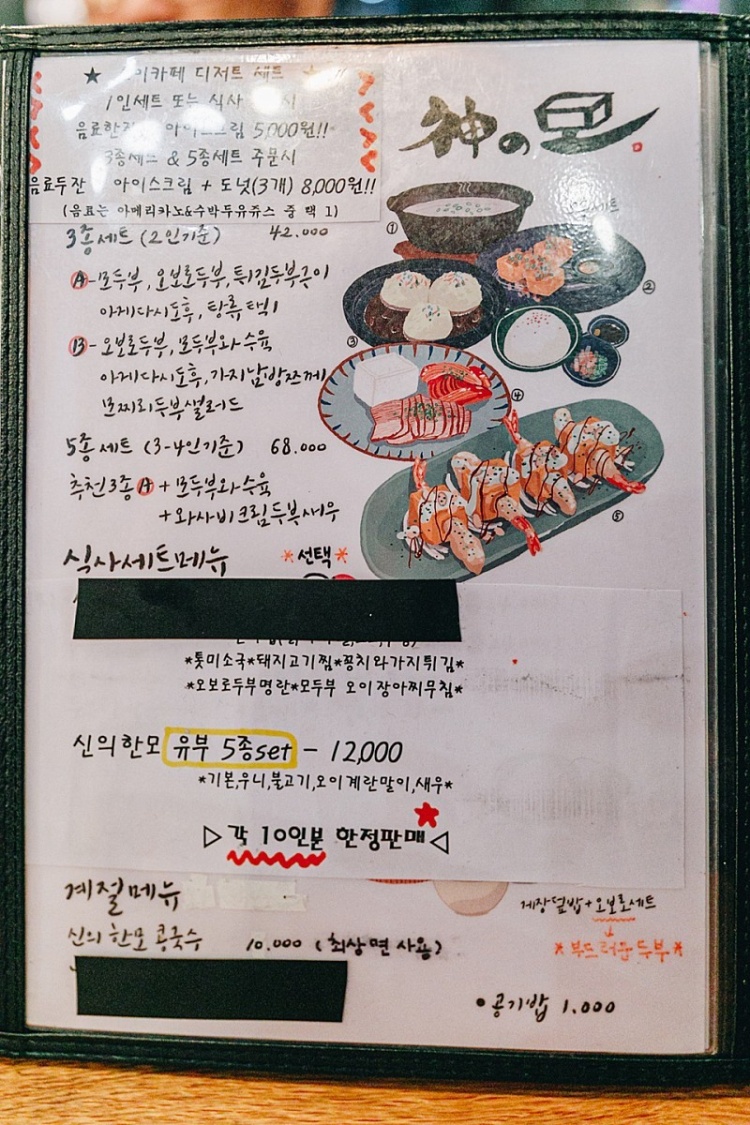 ★ 이카페 디저트 세트 ★
1인세트 또는 식사 시
음료한 아이스크림 5,000원!!
3종세트 & 5종세트 주문시
음료두잔 아이스크림 + 도넛(3개) 8,000원!!
(음료는 아메리카노&수박두유쥬스 중 택 1)
神の모
3종세트 (2인기준) 42.000
A-모두부, 오보로두부, 튀김두부구이
아게다시도후, 탕류 택1
B-오보로두부, 모두부와수육
아게다시도후, 가지남방쯔께
모찌리두부샐러드
5종세트 (3-4인기준) 68.000
추천3종A + 모두부와수육
+ 와사비크림두부새우
① ② ③ ④ ⑤
식사세트메뉴 *선택*
*톳미소국*돼지고기찜*꽁치와가지튀김*
*오보로두부명란*모두부 오이장아찌무침*
신의한모 유부 5종set - 12,000
*기본,우니,불고기,오이계란말이,새우*
▷각 10인분 한정판매◁
계절메뉴
신의 한모 콩국수 10.000 (최상면 사용)
게장덮밥+오보로세트
*부드러운두부*
•공기밥 1.000